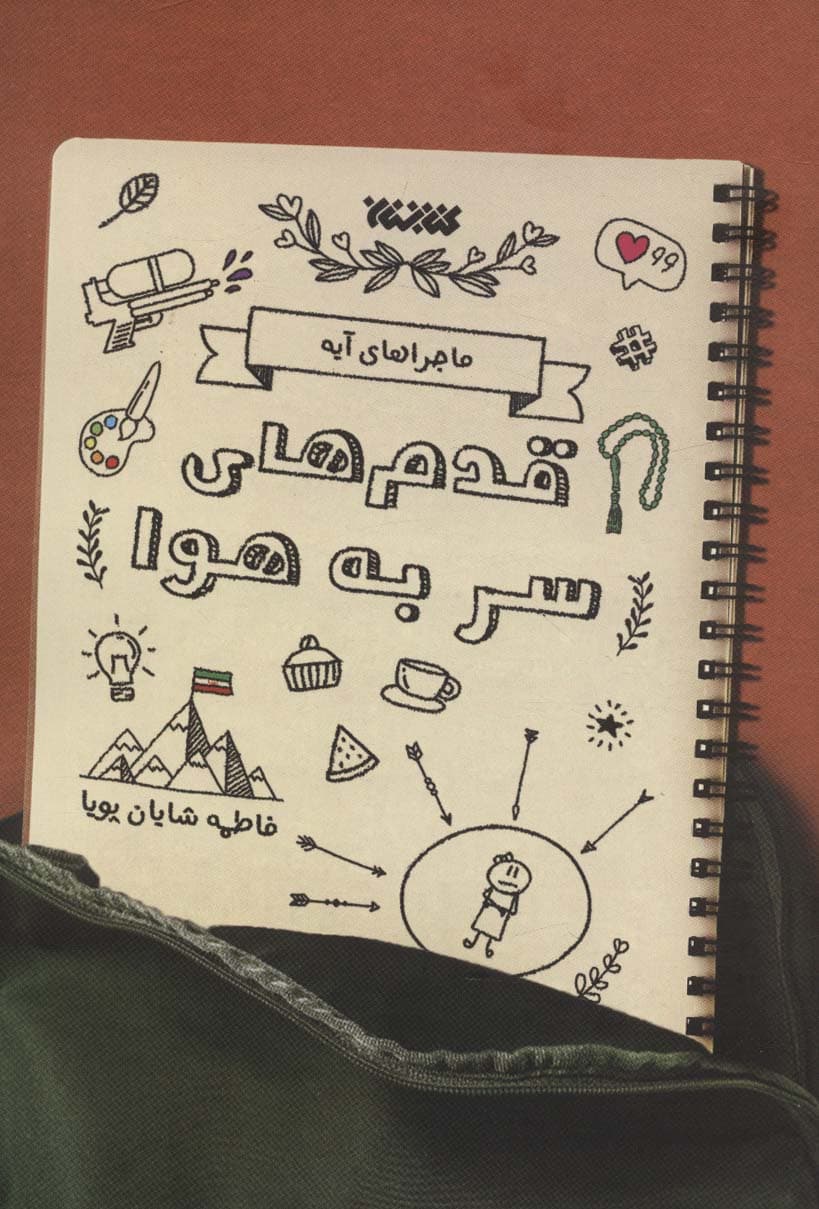 کتابستان
99
#
ماجراهای آیه
قدم‌های
سر به هوا
فاطمه شایان پویا